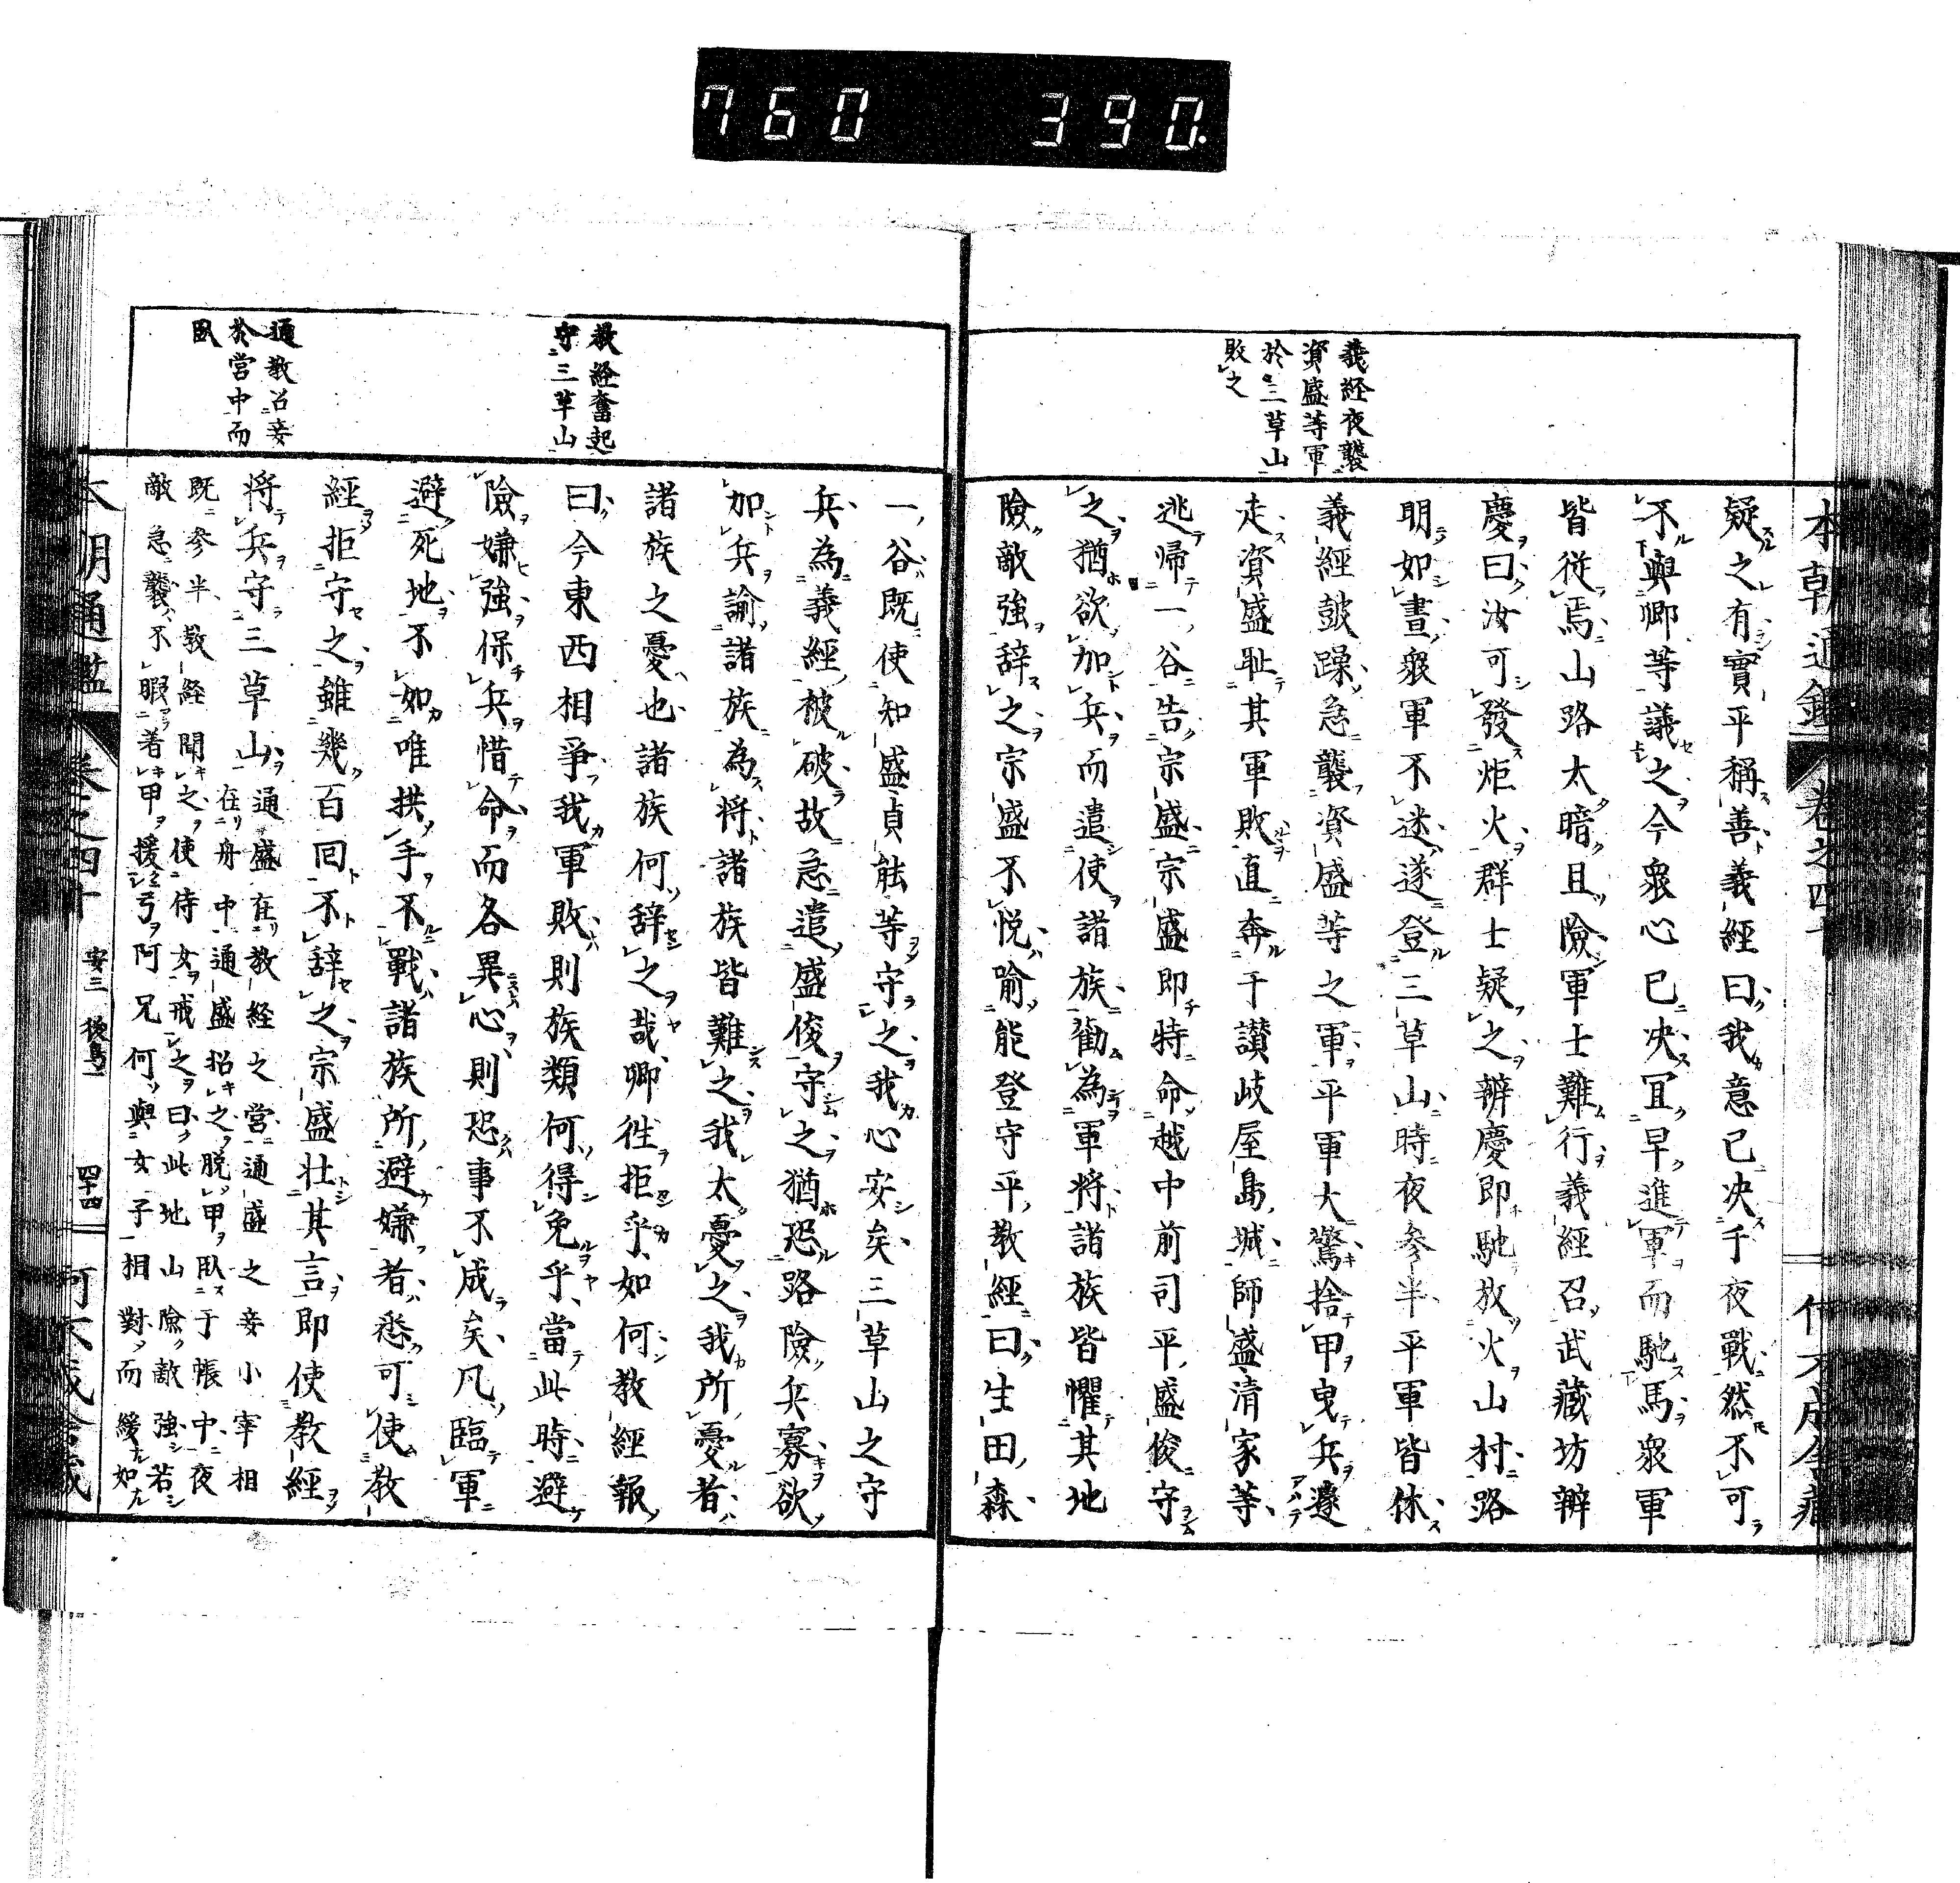 760 390.
本朝通鑑 卷之四十
義経夜襲
資盛等軍
於三草山
敗之
疑之有實平稱善義經曰我意已决千夜戰然不可
不與卿等議之今衆心已决冝早進軍而馳馬衆軍
皆從焉山路太暗且險軍士難行義經召武藏坊辨
慶曰汝可發炬火群士疑之辨慶即馳放火山村路
明如晝衆軍不迷遂登三草山時夜参半平軍皆休
義經鼓躁急襲資盛等之軍平軍大驚捨甲曳兵遽
走資盛耻其軍敗直奔于讃岐屋島城師盛清家等
逃帰一谷告宗盛宗盛即特命越中前司平盛俊守
之猶欲加兵而遣使諸族勸為軍将諸族皆懼其地
險敵強辞之宗盛不悦喻能登守平教經曰生田森
一谷既使知盛貞能等守之我心安矣三草山之守
兵為義經被破故急遣盛俊守之猶恐路險兵寡欲
加兵諭諸族為将諸族皆難之我太憂之我所憂者
諸族之憂也諸族何辞之哉卿往拒乎如何教經報
曰今東西相爭我軍敗則族類何得免乎當此時避
險嫌強保兵惜命而各異心則恐事不成矣凡臨軍
避死地不如唯拱手不戰諸族所避嫌者悉可使教
經拒守之雖幾百回不辞之宗盛壮其言即使教經
将兵守三草山通盛在教経之営通盛之妾小宰相
在舟中通盛招之脱甲臥于帳中夜
既参半教経聞之使侍女戒之曰此地山險敵強若
敵急襲不暇着甲援弓阿兄何與女子相對而緩如
教経奮起
守三草山
通教召妾
於営中而
臥
本朝通鑑 卷之四十 安三 後鳥一 四十四